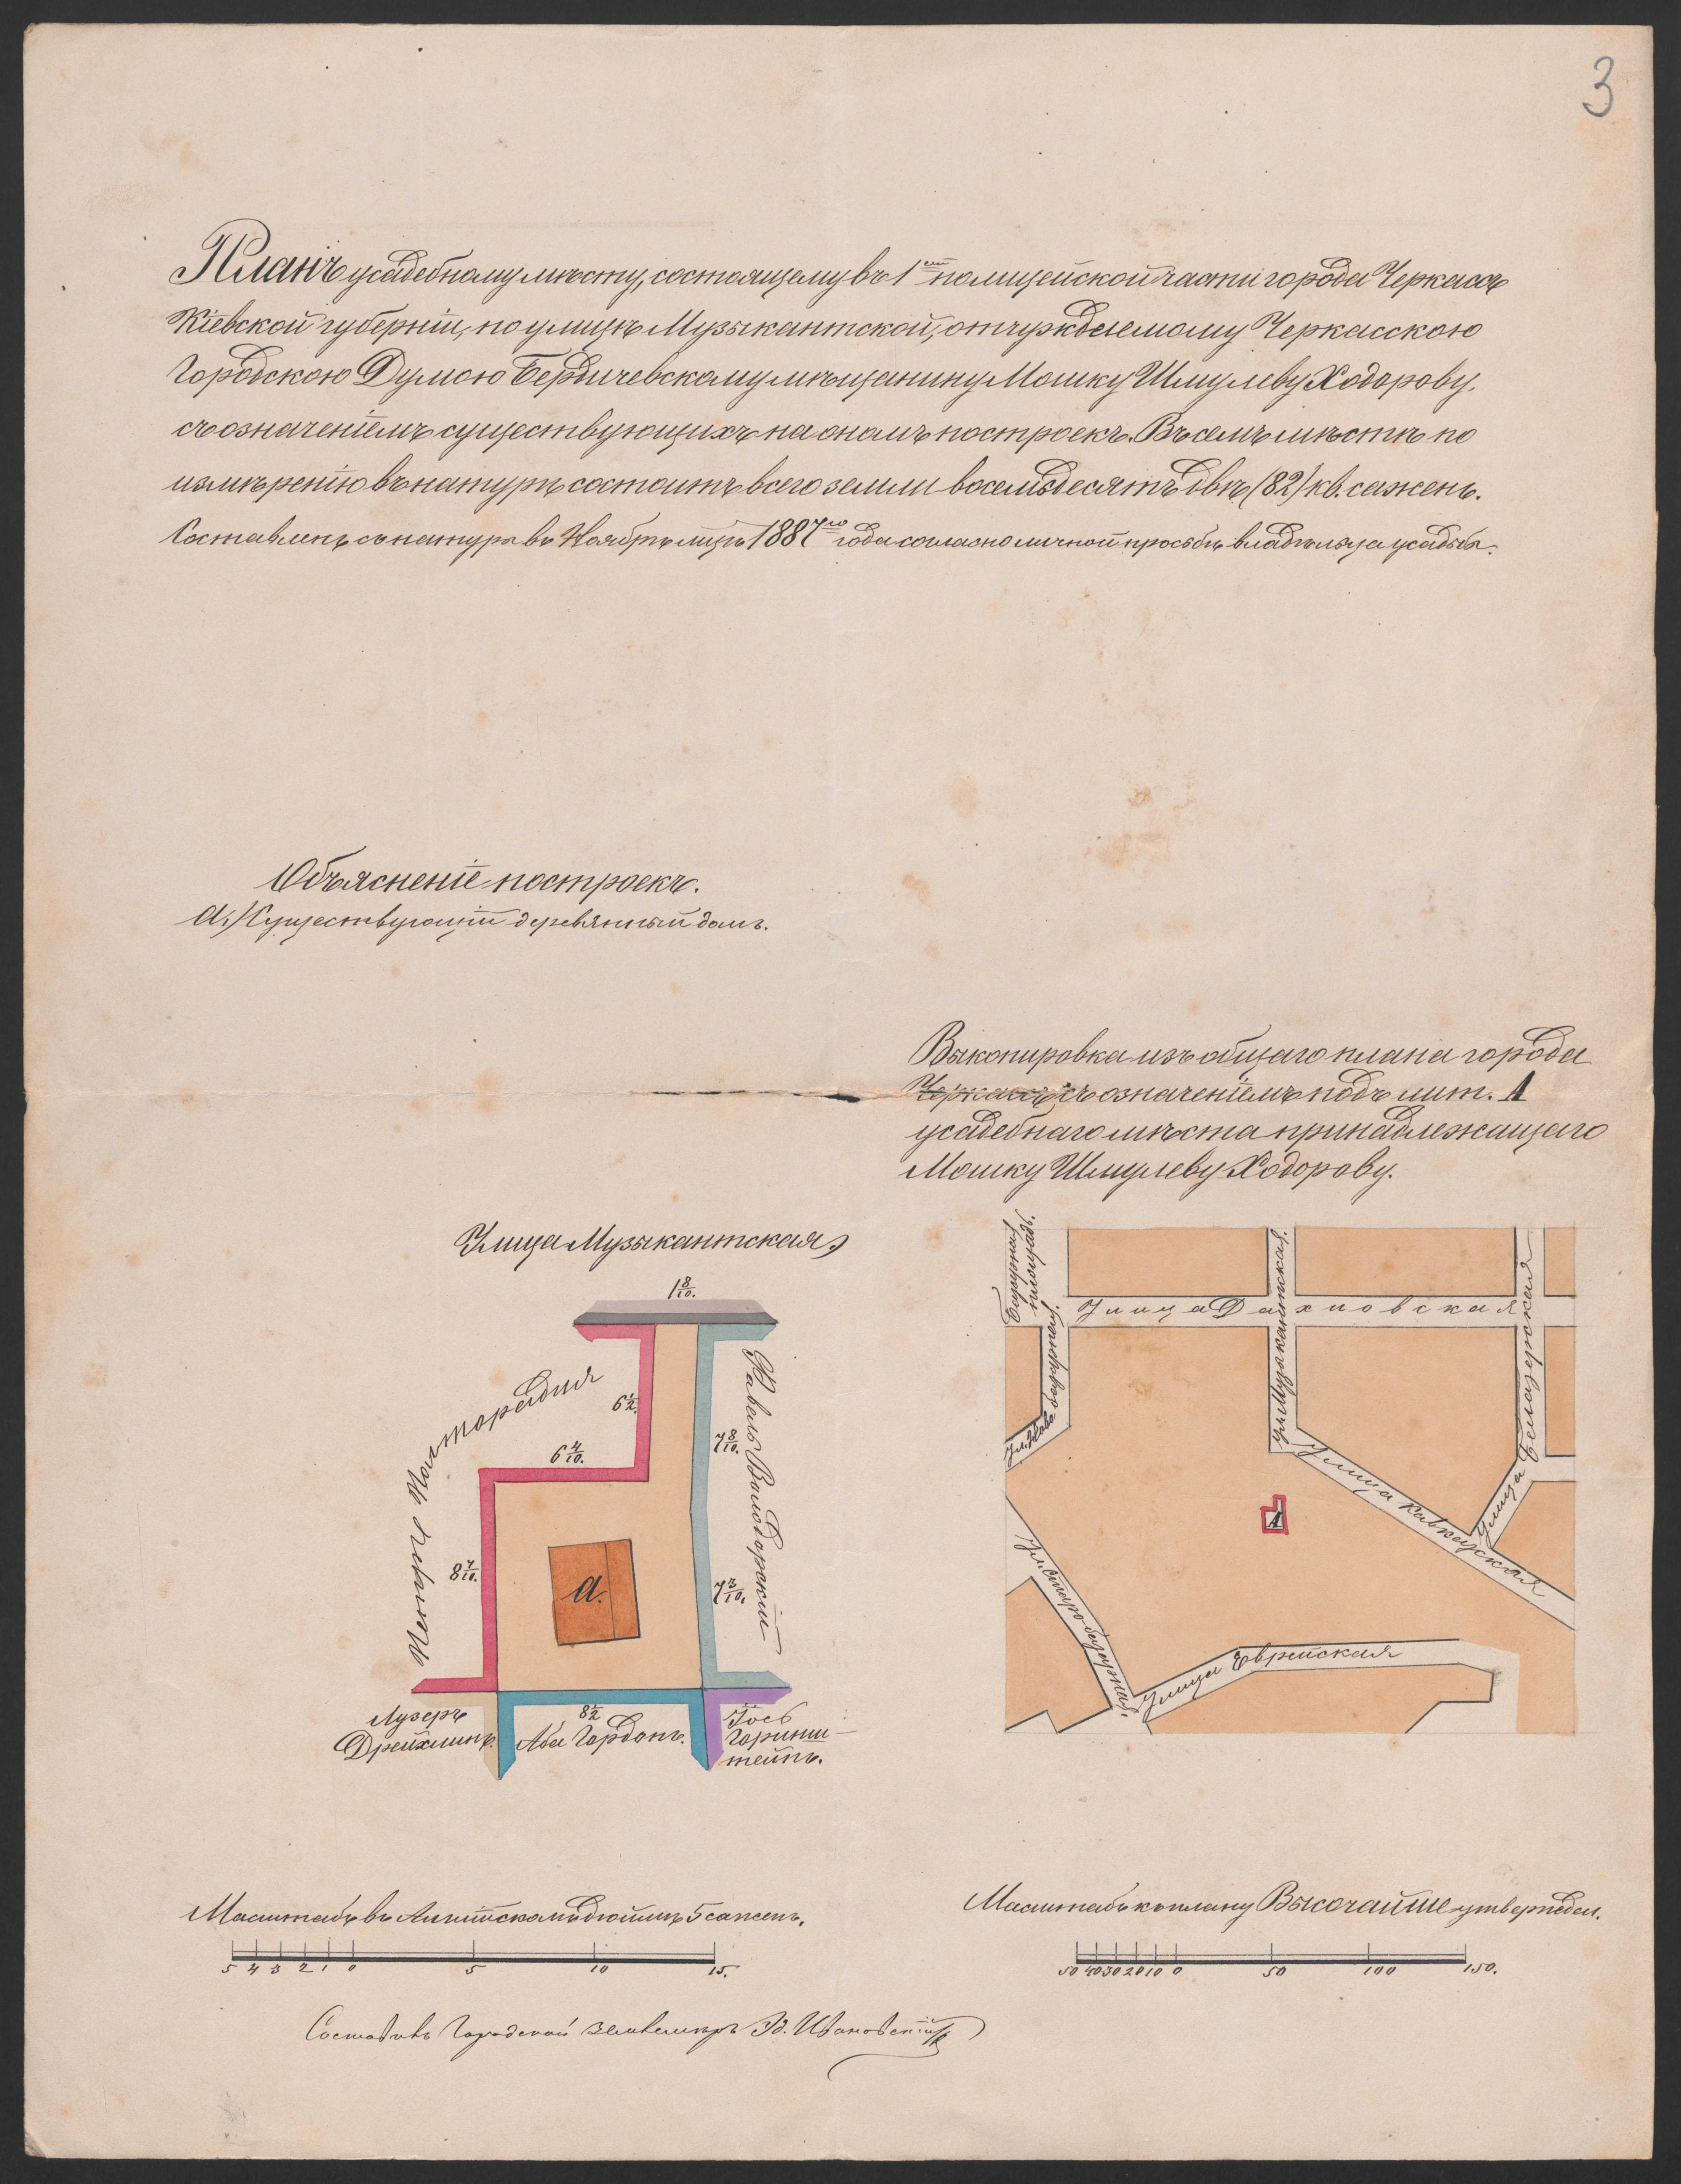 3
Планъ усадебному мѣсту, состоящему въ 1ой полицейской части города Черкасъ
Кіевской губерніи, по улицѣ Музыкантской, отчуждаемому Черкасскою
Городскою Думою Бердичевскому мѣщанину Мошку Шмулеву Ходорову,
съ означеніемъ существующихъ на ономъ построекъ. Въ семъ мѣстѣ по
измѣренію въ натурѣ состоитъ всего земли восемьдесятъ двѣ (82) кв. сажень.
Составленъ съ натуры въ Ноябрѣ мѣсяцѣ 1887го года согласно личной просьбѣ владѣльца усадьбы.
Объясненіе построекъ.
А.) Существующій деревянный домъ.
Выкопировка изъ общаго плана города
Черкасъ съ означеніемъ подъ лит. А
усадебнаго мѣста принадлежащаго
Мошку Шмулеву Ходорову.
Улица Музыкантская
1 8/10.
6 1/2.
6 4/10.
7 8/10.
8 7/10.
7 3/10.
8 1/2
а.
Полторадня
Павелъ Володорскій
Лузеръ
Дрейхлинъ.
Аба Гордонъ.
Іось
Горинш-
тейнъ.
Базарная
площадь.
Улица Дахновская
Ул. Музыкантская.
Улица Белазерская
Ул. Ново базарная.
Улица Кавказская
А
Ул. Старо-базарная.
Улица Еврейская
Масштабъ въ Англійскомъ дюймѣ 5 сажень.
5 4 3 2 1 0 5 10 15.
Масштабъ къ плану Высочайше утвержден.
50 40 30 20 10 0 50 100 150.
Составилъ Городской Землемѣръ В. Ивановскій